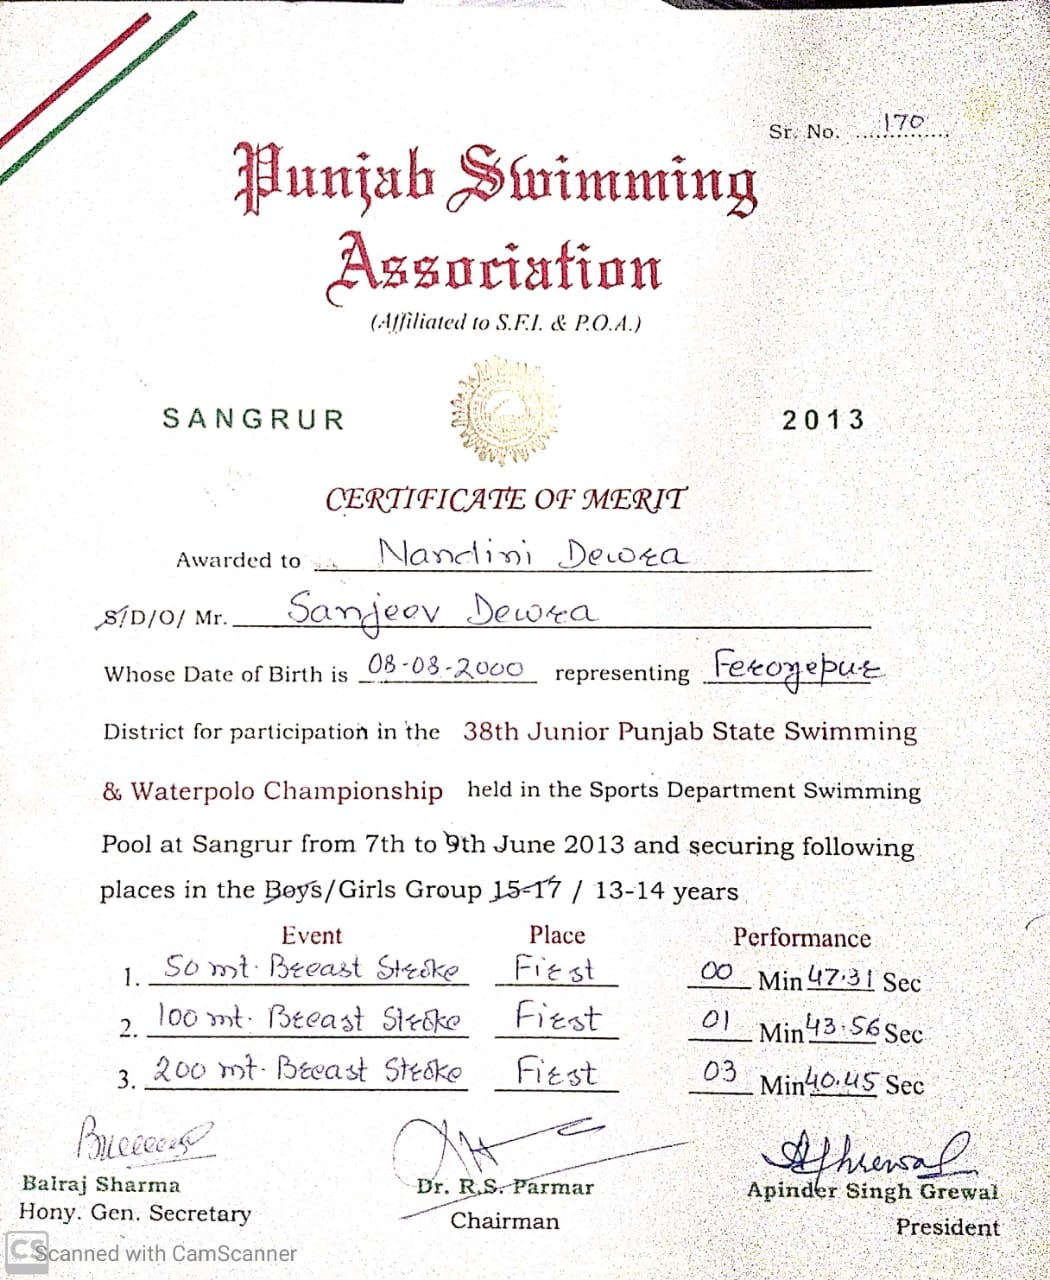 Sr. No. 170
Punjab Swimming
Association
(Affiliated to S.F.I. & P.O.A.)
SANGRUR 2013
CERTIFICATE OF MERIT
Awarded to Nandini Dewra
S/D/O/ Mr. Sanjeev Dewra
Whose Date of Birth is 08-08-2000 representing Ferozepur
District for participation in the 38th Junior Punjab State Swimming
& Waterpolo Championship held in the Sports Department Swimming
Pool at Sangrur from 7th to 9th June 2013 and securing following
places in the Boys/Girls Group 15-17 / 13-14 years
Event Place Performance
1. 50 mt. Breast Stroke First 00 Min 47.31 Sec
2. 100 mt. Breast Stroke First 01 Min 43.56 Sec
3. 200 mt. Breast Stroke First 03 Min 40.45 Sec
Balraj Sharma Dr. R.S. Parmar Apinder Singh Grewal
Hony. Gen. Secretary Chairman President
CS Scanned with CamScanner